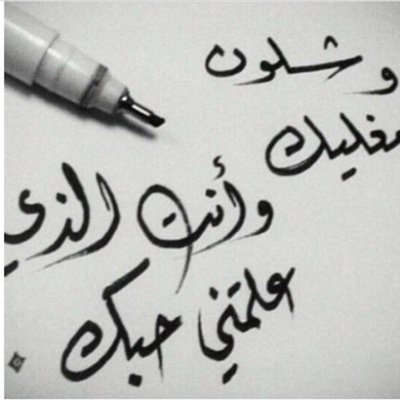 وشلون
مغليك
وأنت الذي
علمتني حبك